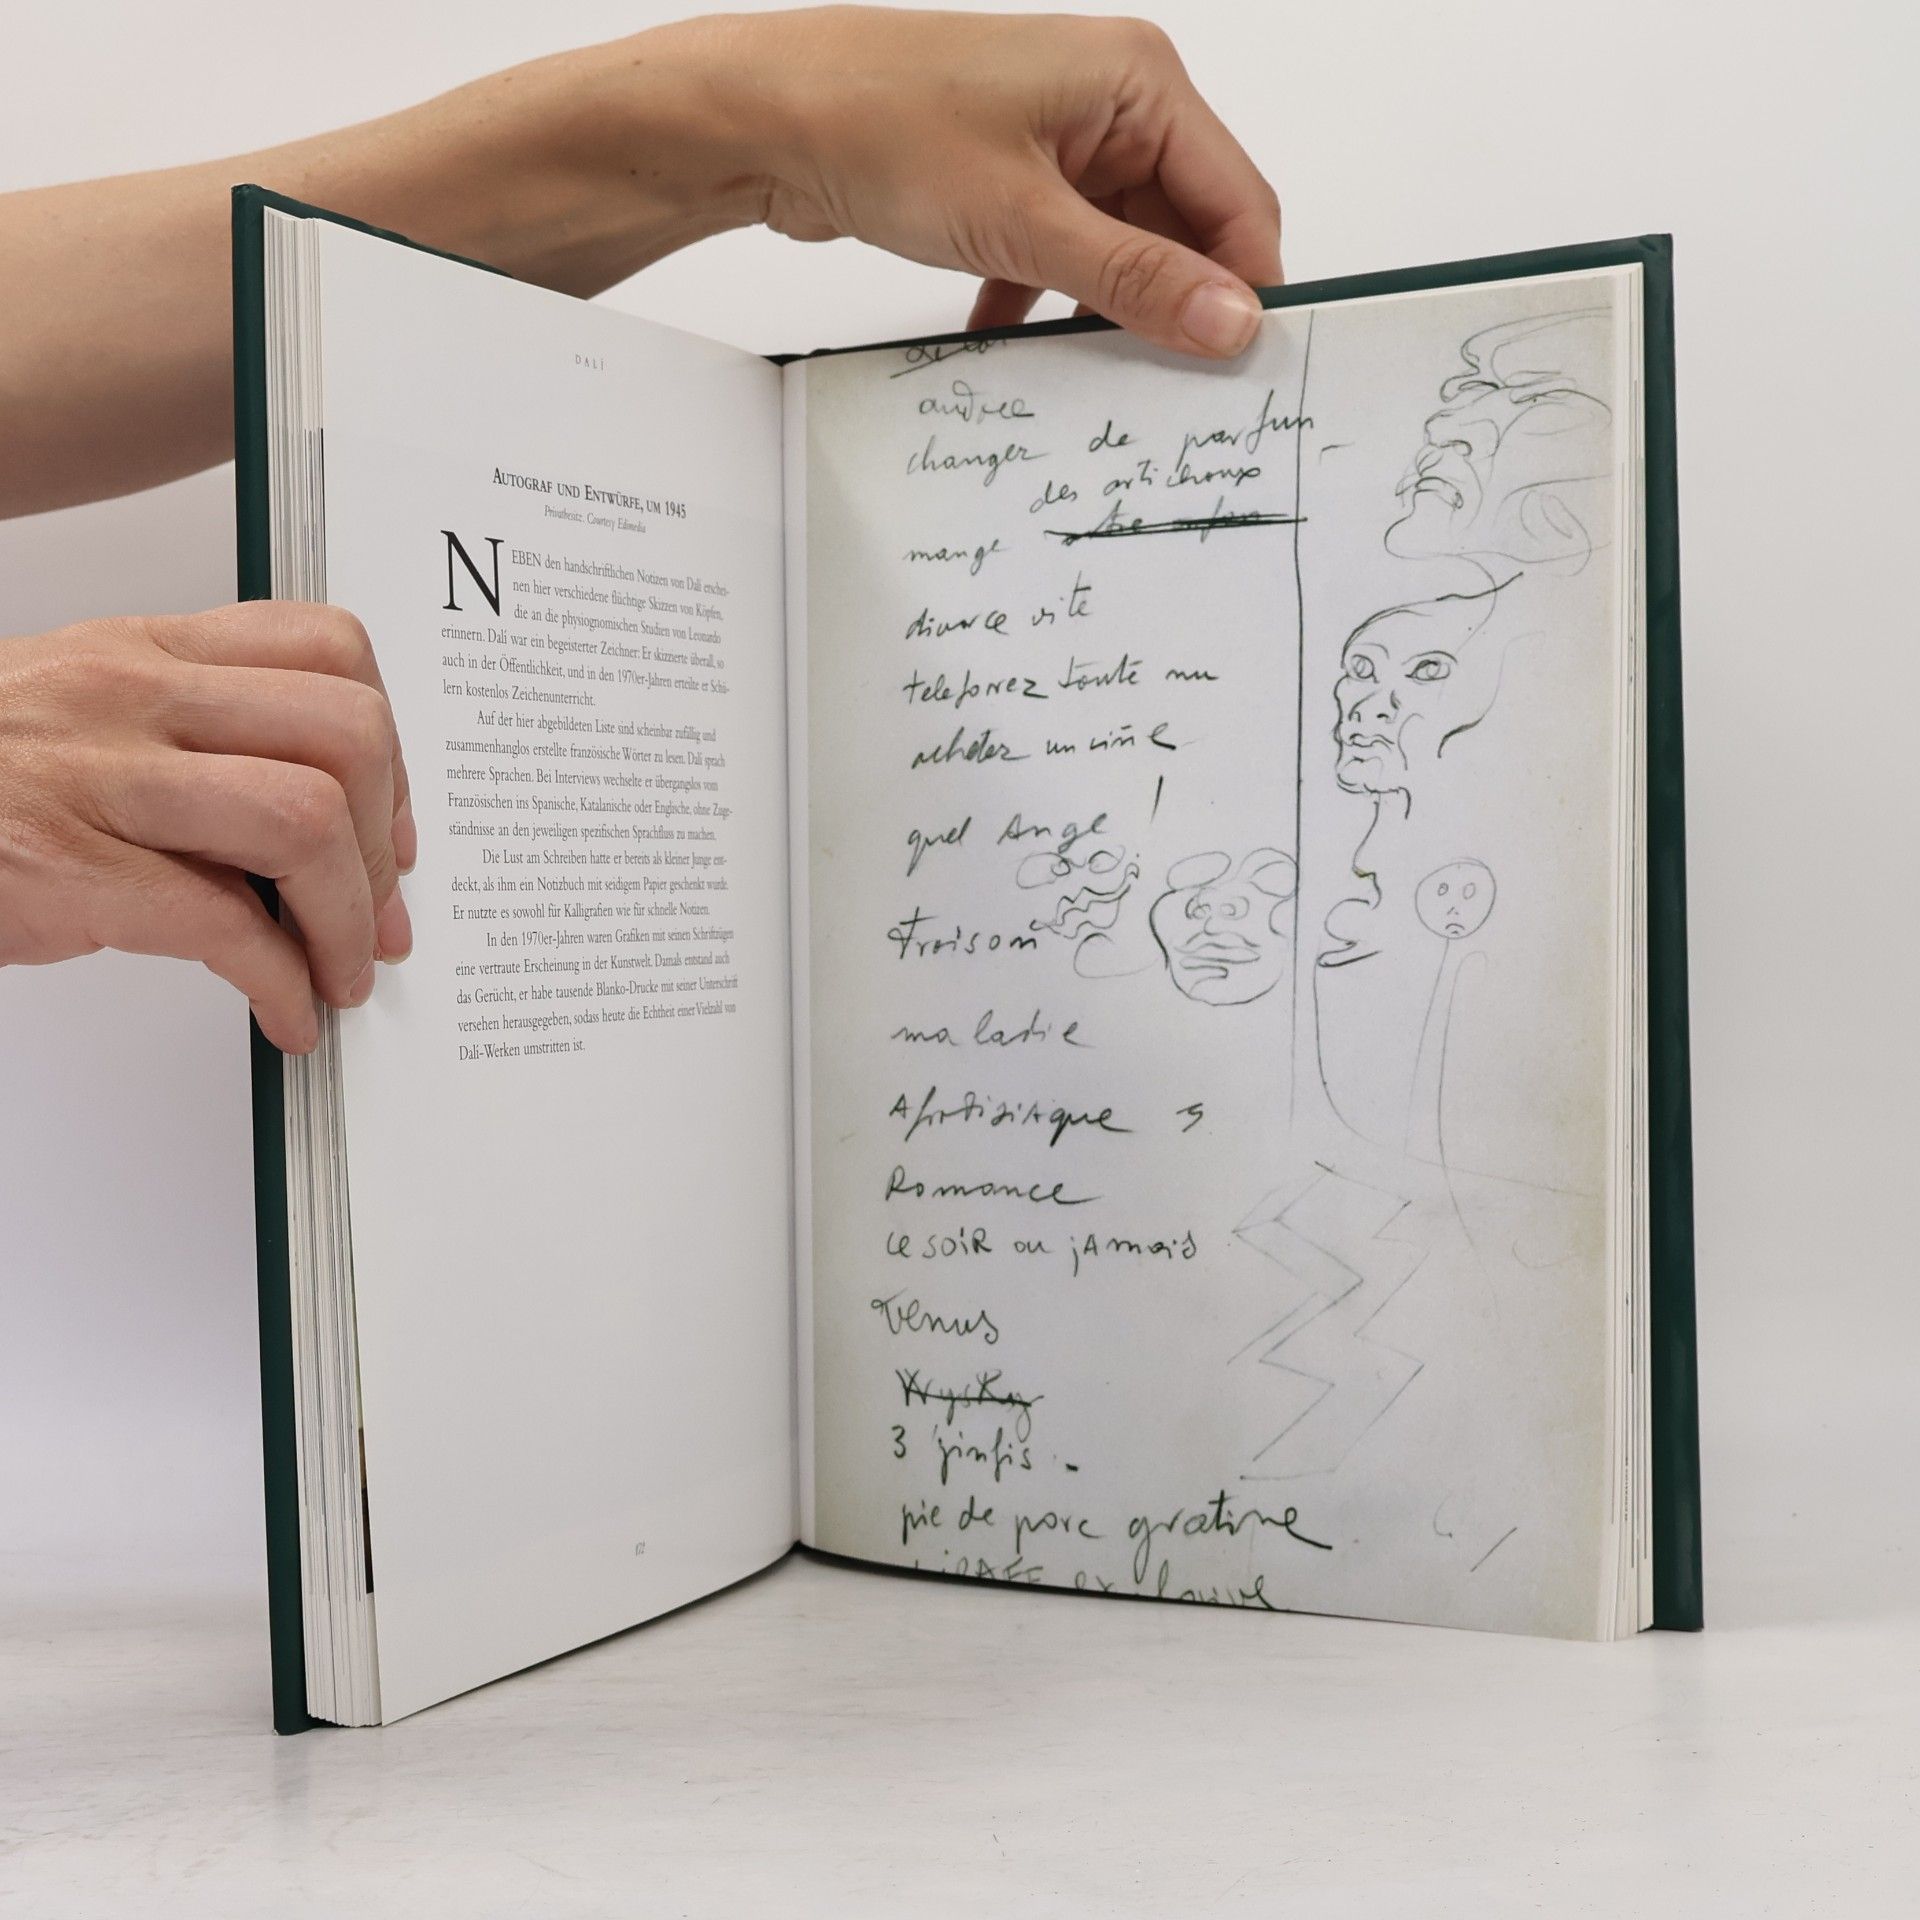 DALÍ
AUTOGRAF UND ENTWÜRFE, UM 1945
Privatbesitz. Courtesy Edimedia
NEBEN den handschriftlichen Notizen von Dalí erschei-
nen hier verschiedene flüchtige Skizzen von Köpfen,
die an die physiognomischen Studien von Leonardo
erinnern. Dalí war ein begeisterter Zeichner: Er skizzierte überall, so
auch in der Öffentlichkeit, und in den 1970er-Jahren erteilte er Schü-
lern kostenlos Zeichenunterricht.
Auf der hier abgebildeten Liste sind scheinbar zufällig und
zusammenhanglos erstellte französische Wörter zu lesen. Dalí sprach
mehrere Sprachen. Bei Interviews wechselte er übergangslos vom
Französischen ins Spanische, Katalanische oder Englische, ohne Zuge-
ständnisse an den jeweiligen spezifischen Sprachfluss zu machen.
Die Lust am Schreiben hatte er bereits als kleiner Junge ent-
deckt, als ihm ein Notizbuch mit seidigem Papier geschenkt wurde.
Er nutzte es sowohl für Kalligrafien wie für schnelle Notizen.
In den 1970er-Jahren waren Grafiken mit seinen Schriftzügen
eine vertraute Erscheinung in der Kunstwelt. Damals entstand auch
das Gerücht, er habe tausende Blanko-Drucke mit seiner Unterschrift
versehen herausgegeben, sodass heute die Echtheit einer Vielzahl von
Dalí-Werken umstritten ist.
172
andree
changer de parfun
des artichoux
mange
divorce vite
telefonez toute nu
achetez un
quel Ange !
maladie
Afrodisiaque
Romance
ce soir ou jAmais
Venus
Wysky
3 jinfis -
pie de porc gratine